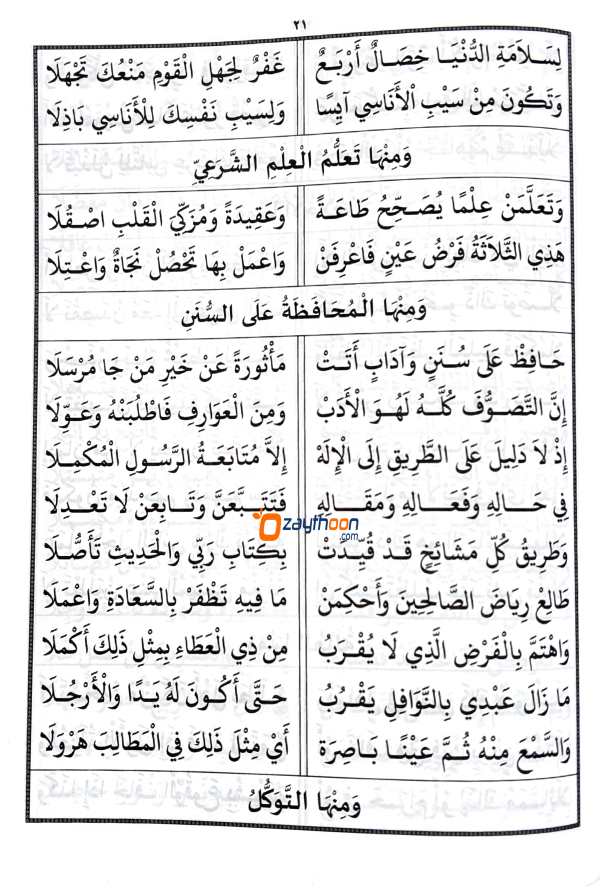 ٢١
لِسَلَامَةِ الدُّنْيَا خِصَالٌ أَرْبَعٌ غَفْرٌ لِجَهْلِ الْقَوْمِ مَنْعُكَ تَجْهَلَا
وَتَكُونَ مِنْ سَيْبِ الْأَنَاسِي آيِسًا وَلِسَيْبِ نَفْسِكَ لِلْأَنَاسِي بَاذِلَا
وَمِنْهَا تَعَلُّمُ الْعِلْمِ الشَّرَعِيِّ
وَتَعَلَّمَنْ عِلْمًا يُصَحِّحُ طَاعَةً وَعَقِيدَةً وَمُزَكِّيَ الْقَلْبِ اصْقُلَا
هَذِي الثَّلَاثَةُ فَرْضُ عَيْنٍ فَاعْرِفَنْ وَاعْمَلْ بِهَا تَحْصُلْ نَجَاةٌ وَاعْتِلَا
وَمِنْهَا الْمُحَافَظَةُ عَلَى السُّنَنِ
حَافِظْ عَلَى سُنَنٍ وَآدَابٍ أَتَتْ مَأْثُورَةً عَنْ خَيْرِ مَنْ جَا مُرْسَلَا
إِنَّ التَّصَوُّفَ كُلَّهُ لَهُوَ الْأَدَبْ وَمِنَ الْعَوَارِفِ فَاطْلُبَنْهُ وَعَوِّلَا
إِذْ لَا دَلِيلَ عَلَى الطَّرِيقِ إِلَى الْإِلَهْ إِلَّا مُتَابَعَةُ الرَّسُولِ الْمُكْمِلَا
فِي حَالِهِ وَفَعَالِهِ وَمَقَالِهِ فَتَتَبَّعَنَّ وَتَابِعَنْ لَا تَعْدِلَا
zaythoon
.com
وَطَرِيقُ كُلِّ مَشَائِخٍ قَدْ قُيِّدَتْ بِكِتَابِ رَبِّي وَالْحَدِيثِ تَأَصُّلَا
طَالِعْ رِيَاضَ الصَّالِحِينَ وَأَحْكِمَنْ مَا فِيهِ تَظْفَرْ بِالسَّعَادَةِ وَاعْمَلَا
وَاهْتَمَّ بِالْفَرْضِ الَّذِي لَا يُقْرَبُ مِنْ ذِي الْعَطَاءِ بِمِثْلِ ذَلِكَ أَكْمَلَا
مَا زَالَ عَبْدِي بِالنَّوَافِلِ يَقْرُبُ حَتَّى أَكُونَ لَهُ يَدًا وَالْأَرْجُلَا
وَالسَّمْعَ مِنْهُ ثُمَّ عَيْنًا بَاصِرَةً أَيْ مِثْلَ ذَلِكَ فِي الْمَطَالِبَ هَرْوَلَا
وَمِنْهَا التَّوَكُّلُ